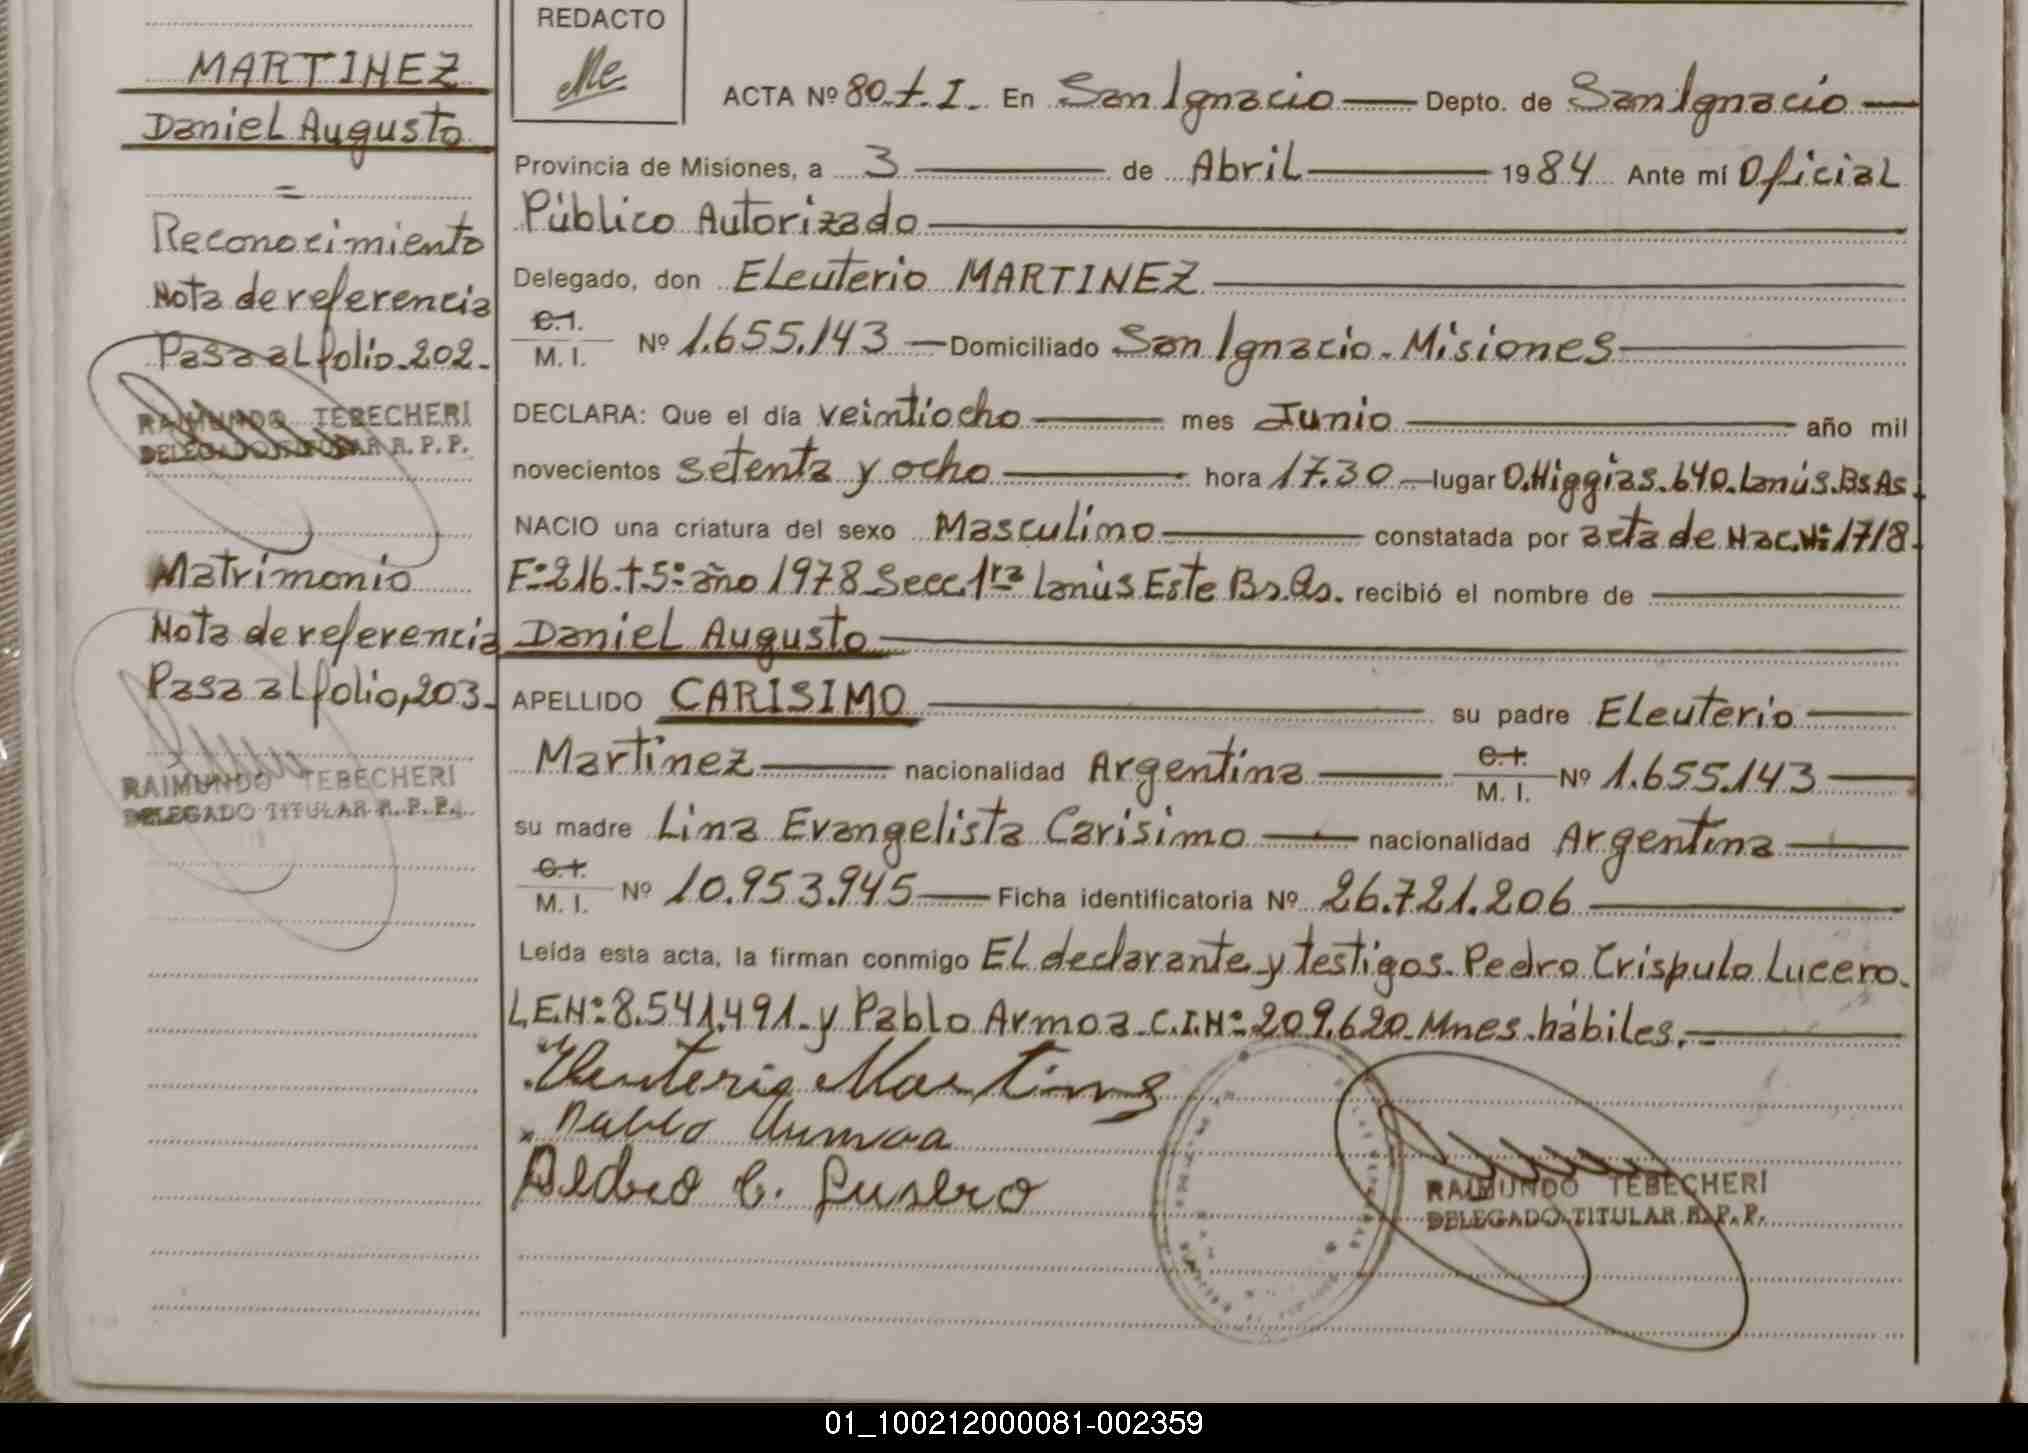 MARTINEZ
Daniel Augusto
=
Reconocimiento
Nota de referencia
Pasa al folio 202-
RAIMUNDO TEBECHERI
DELEGADO TITULAR R. P. P.
Matrimonio
Nota de referencia
Pasa al folio, 203-
RAIMUNDO TEBECHERI
DELEGADO TITULAR R. P. P.
REDACTO
ACTA Nº 80. t. I. En San Ignacio Depto. de San Ignacio
Provincia de Misiones, a 3 de Abril 1984 Ante mí Oficial
Público Autorizado
Delegado, don Eleuterio MARTINEZ
C.I.
M. I. Nº 1.655.143 Domiciliado San Ignacio - Misiones
DECLARA: Que el día veintiocho mes Junio año mil
novecientos setenta y ocho hora 17.30 lugar O.Higgias. 640. Lanús. Bs As.
NACIO una criatura del sexo Masculino constatada por acta de Nac. Nº 1718.
Fº 216. t. 5º año 1978 Secc. 1ra Lanús Este Bs. As. recibió el nombre de
Daniel Augusto
APELLIDO CARISIMO su padre Eleuterio
Martinez nacionalidad Argentina C.I. M. I. Nº 1.655.143
su madre Lina Evangelista Carisimo nacionalidad Argentina
C.I.
M. I. Nº 10.953.945 Ficha identificatoria Nº 26.721.206
Leída esta acta, la firman conmigo El declarante y testigos. Pedro Crispulo Lucero.
L.E.Nº 8.541.491. y Pablo Armoa. C.I.Nº 209.620. Mnes. hábiles.
Eleuterio Martinez
Pablo Armoa
Pedro C. Lusero
RAIMUNDO TEBECHERI
DELEGADO TITULAR R. P. P.
01_100212000081-002359